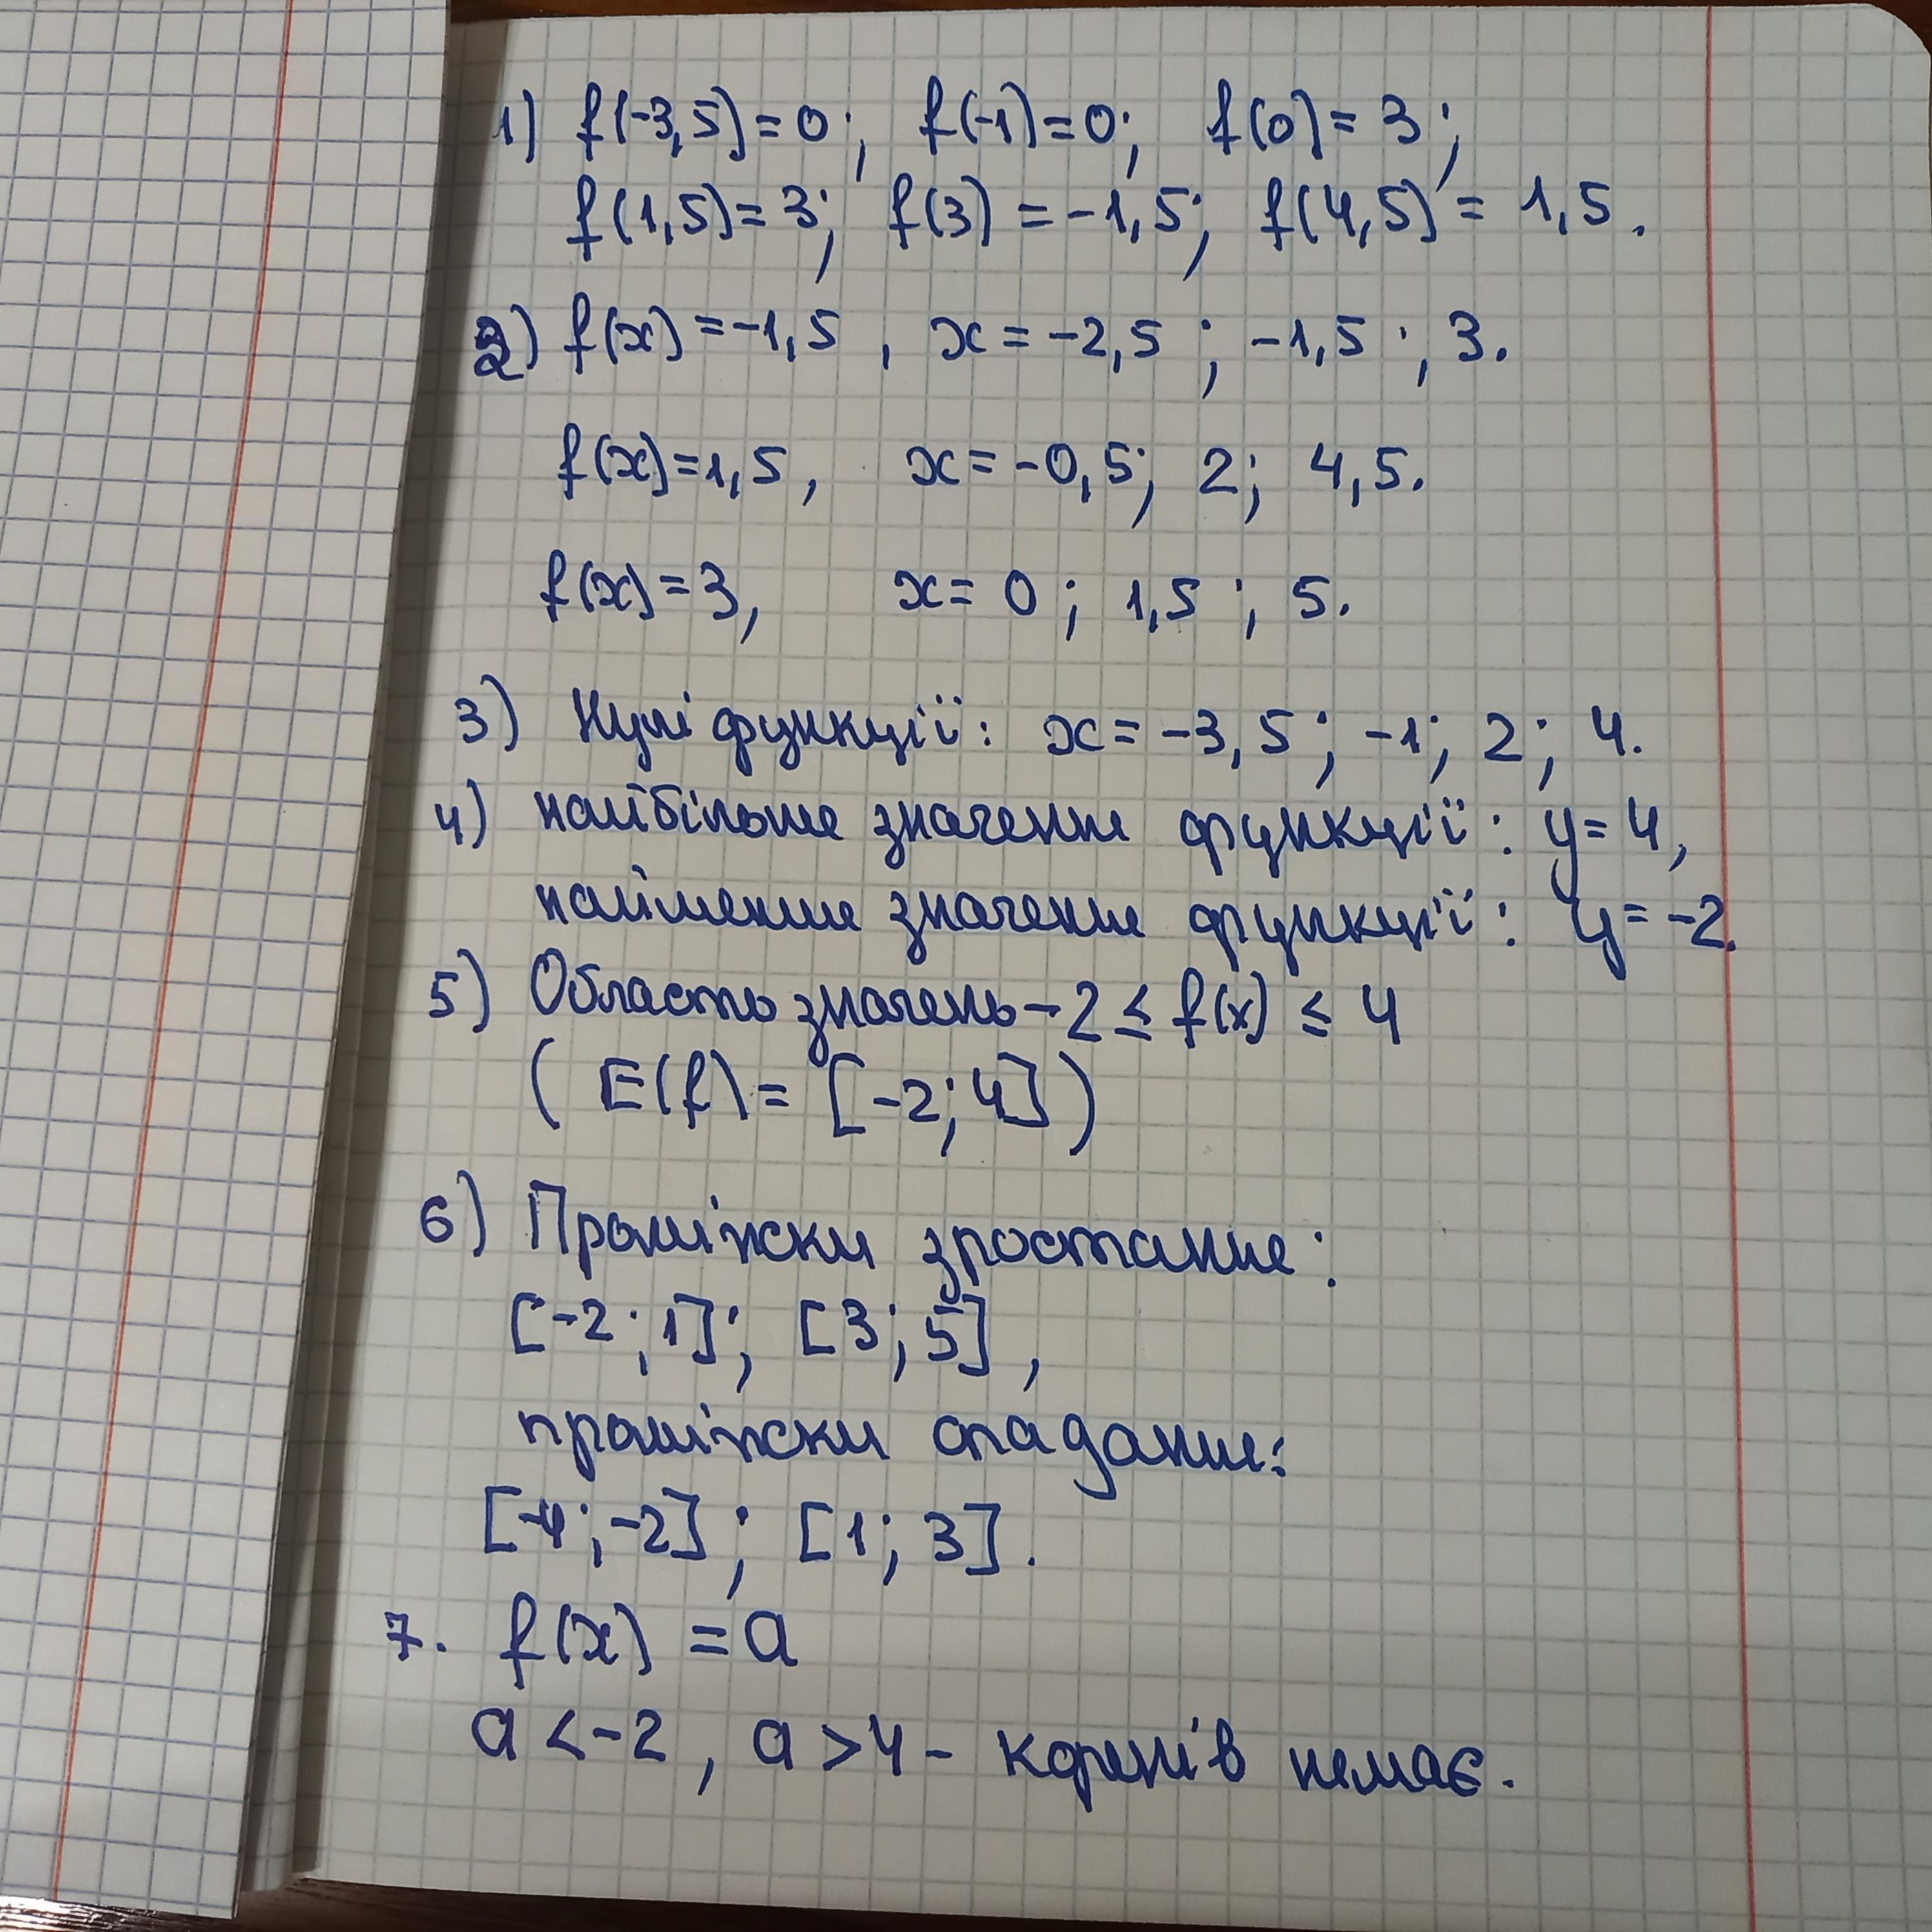 1) f(-3,5)=0; f(-1)=0; f(0)=3;
f(1,5)=3; f(3)=-1,5; f(4,5)=1,5.
2) f(x)=-1,5, x=-2,5; -1,5; 3.
f(x)=1,5, x=-0,5; 2; 4,5.
f(x)=3, x=0; 1,5; 5.
3) Нулі функції: x=-3,5; -1; 2; 4.
4) найбільше значення функції: y=4,
найменше значення функції: y=-2.
5) Область значень -2 ≤ f(x) ≤ 4
( E(f)= [-2;4])
6) Проміжки зростання:
[-2;1]; [3;5],
проміжки спадання:
[-4;-2]; [1;3].
7. f(x)=a
a<-2, a>4 - коренів немає.